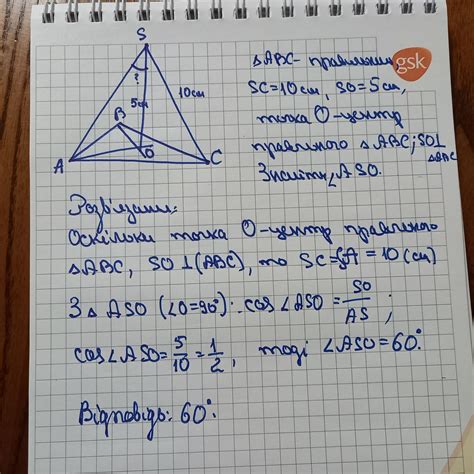 S
?
5см
10см
B
A
O
C
△ABC - правильний,
SC=10см, SO=5см,
точка O-центр
правильного △ABC; SO⊥
△ABC
Знайти ∠ASO.
gsk
Розв'язання:
Оскільки точка O-центр правильного
△ABC, SO⊥(ABC), то SC=SA=10(см)
З △ASO (∠O=90°): cos∠ASO = SO/AS ;
cos∠ASO = 5/10 = 1/2, тоді ∠ASO=60°.
Відповідь: 60°.